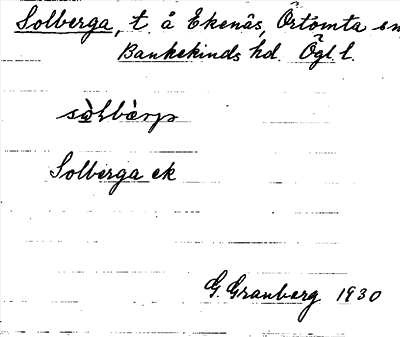 Solberga, t. å Ekenäs, Örtomta sn
Bankekinds hd. Ögl l.
Solberga ek
G. Granberg 1930